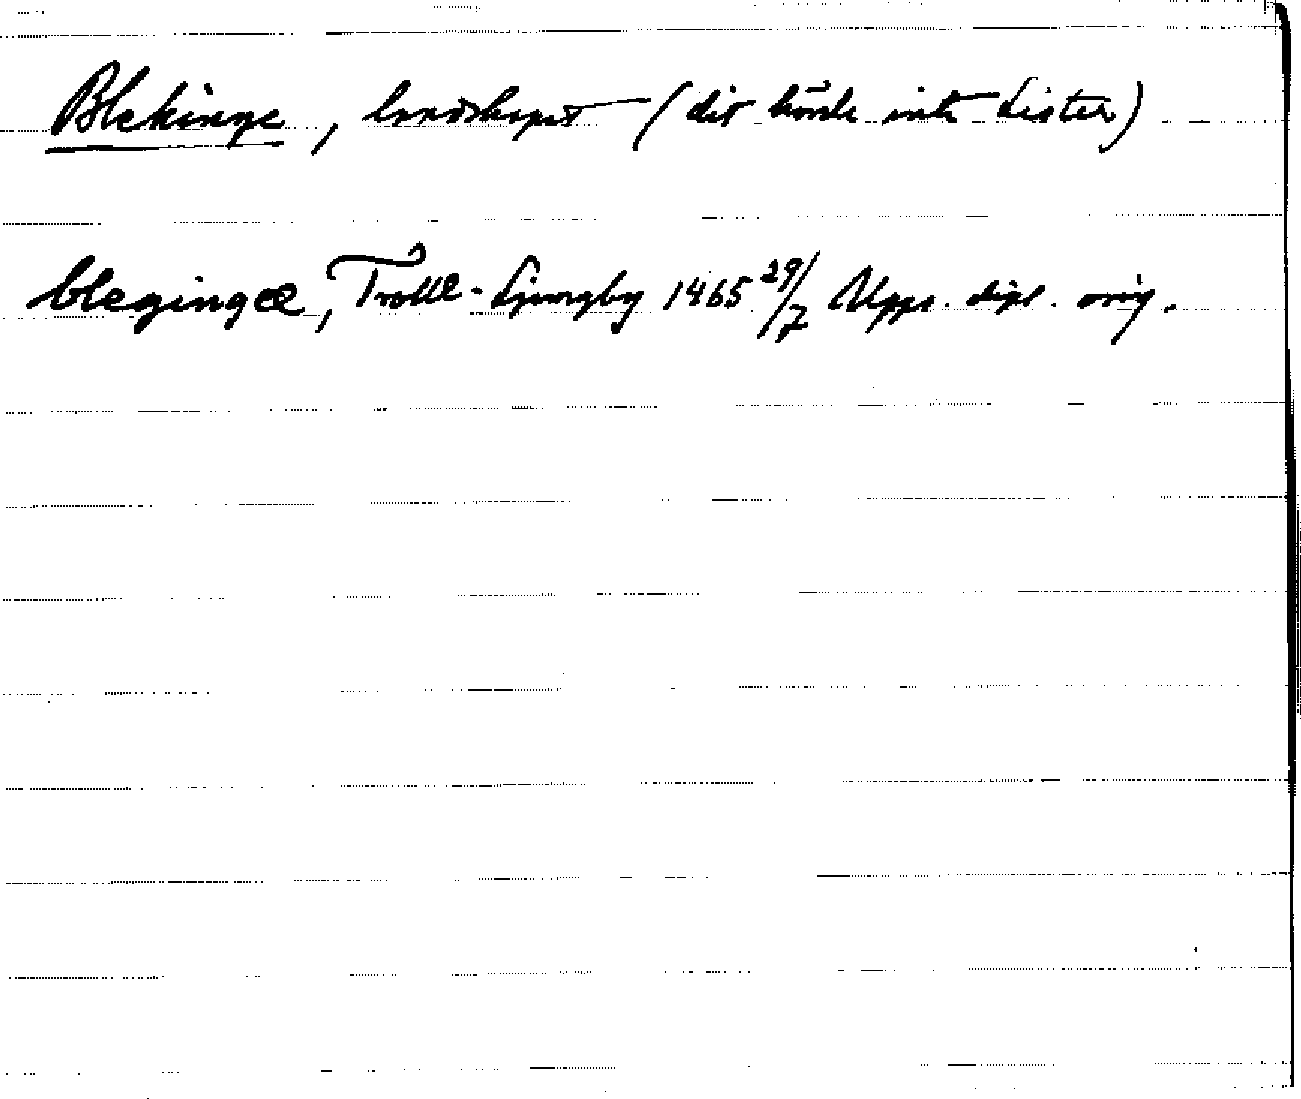 Blekinge, landskapet (dit hörde inte Lister)
blegingæ, Trolle-Ljungby 1465 29/7 Upps. dipl. orig.